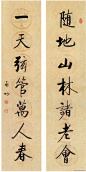 随地山林諸老會
一天弦管萬人春